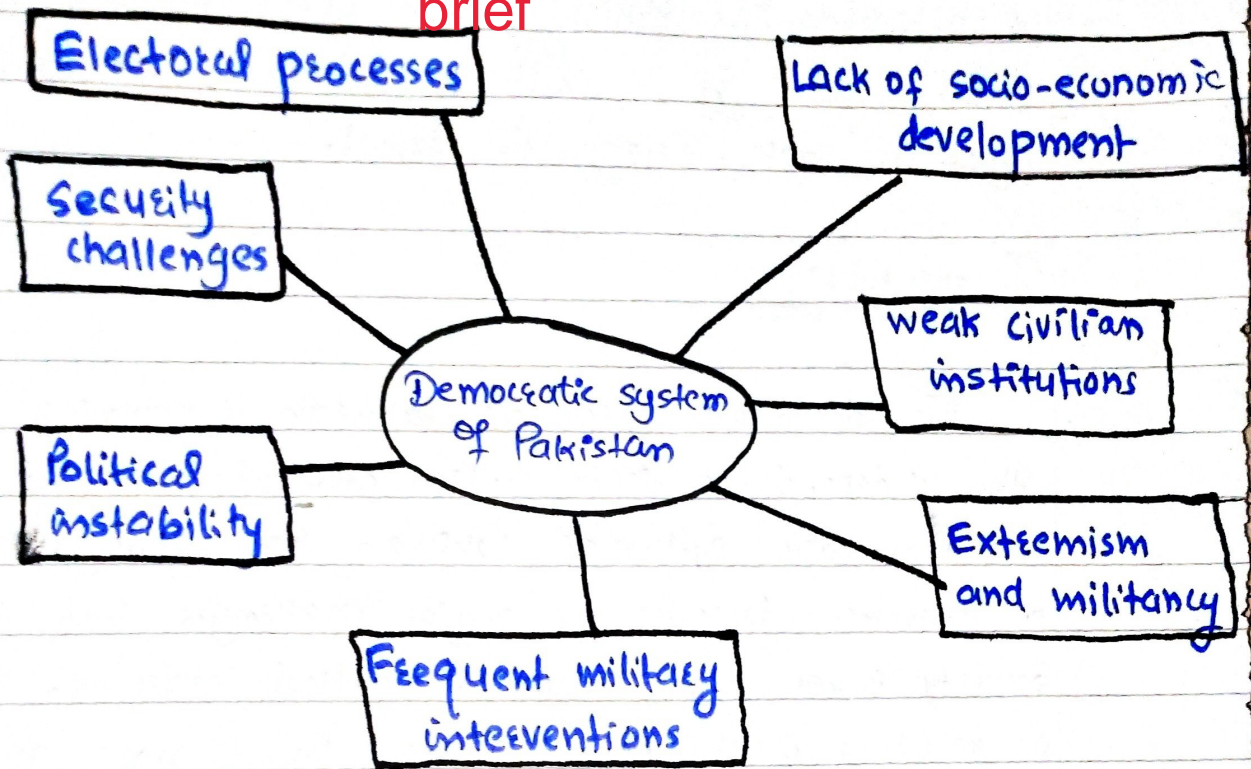 brief
Electoral processes
Lack of socio-economic
development
Security
challenges
Weak civilian
institutions
Democratic system
of Pakistan
Political
instability
Extremism
and militancy
Frequent military
interventions